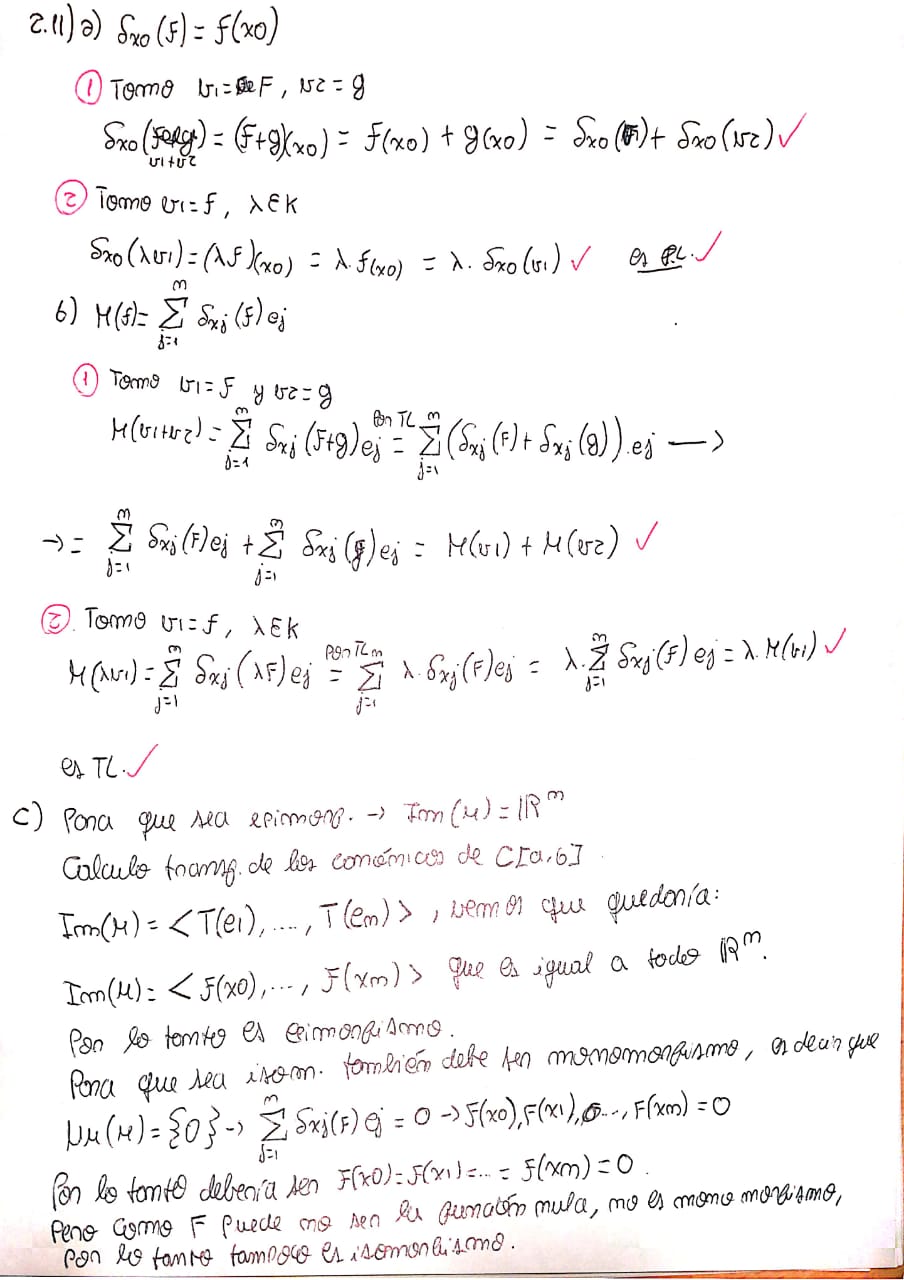 2.11) a) δx0 (f) = f(x0)
① Tomo v1 = F, v2 = g
δx0 (f+g) = (F+g)(x0) = f(x0) + g(x0) = δx0 (F) + δx0 (v2) ✓
v1+v2
② Tomo v1 = f, λ ∈ K
δx0 (λv1) = (λf)(x0) = λ.f(x0) = λ. δx0 (v1) ✓ es TL. ✓
b) M(f) = ∑_{j=1}^{m} δxj (f) ej
① Tomo v1 = f y v2 = g
M(v1+v2) = ∑_{j=1}^{m} δxj (F+g) ej =^{Por TL} ∑_{j=1}^{m} (δxj (F) + δxj (g)).ej →
→ = ∑_{j=1}^{m} δxj (F) ej + ∑_{j=1}^{m} δxj (g) ej = M(v1) + M(v2) ✓
②. Tomo v1 = f, λ ∈ K
M(λv1) = ∑_{j=1}^{m} δxj (λF) ej =^{Por TL} ∑_{j=1}^{m} λ. δxj (F) ej = λ. ∑_{j=1}^{m} δxj (F) ej = λ. M(v1) ✓
es TL. ✓
c) Para que sea epimorf. → Im (M) = ℝ^m
Calculo transf. de los canónicos de C[a,b]
Im(M) = <T(e1), ...., T(em)>, vemos que quedaría:
Im(M) = <f(x0), ..., F(xm)> que es igual a todo ℝ^m.
Por lo tanto es epimorfismo.
Para que sea isom. también debe ser monomorfismo, es decir que
Nu(M) = {0} → ∑_{j=1}^{m} δxj(F) ej = 0 → F(x0), F(x1), ..., F(xm) = 0
Por lo tanto debería ser F(x0) = F(x1) = ... = f(xm) = 0.
Pero como F puede no ser la función nula, no es monomorfismo,
por lo tanto tampoco es isomorfismo.